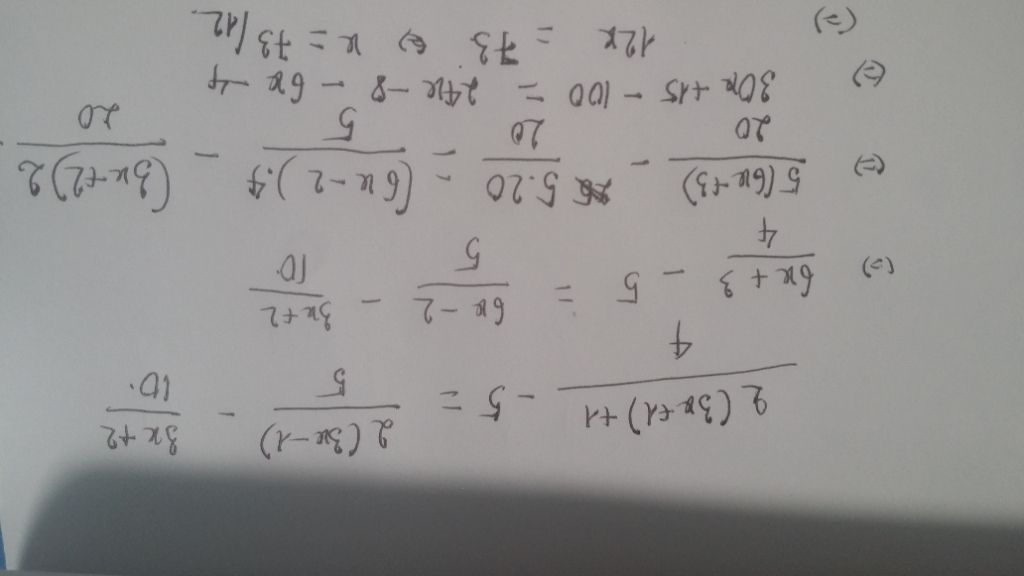 2(3x+1)+1/4 - 5 = 2(3x-1)/5 - 3x+2/10.
(=) 6x+3/4 - 5 = 6x-2/5 - 3x+2/10
(=) 5(6x+3)/20 - 5.20/20 = (6x-2).4/5 - (3x+2)2/20
(=) 30x+15-100 = 24x-8-6x-4
(=) 12x = 73 <=> x = 73/12.